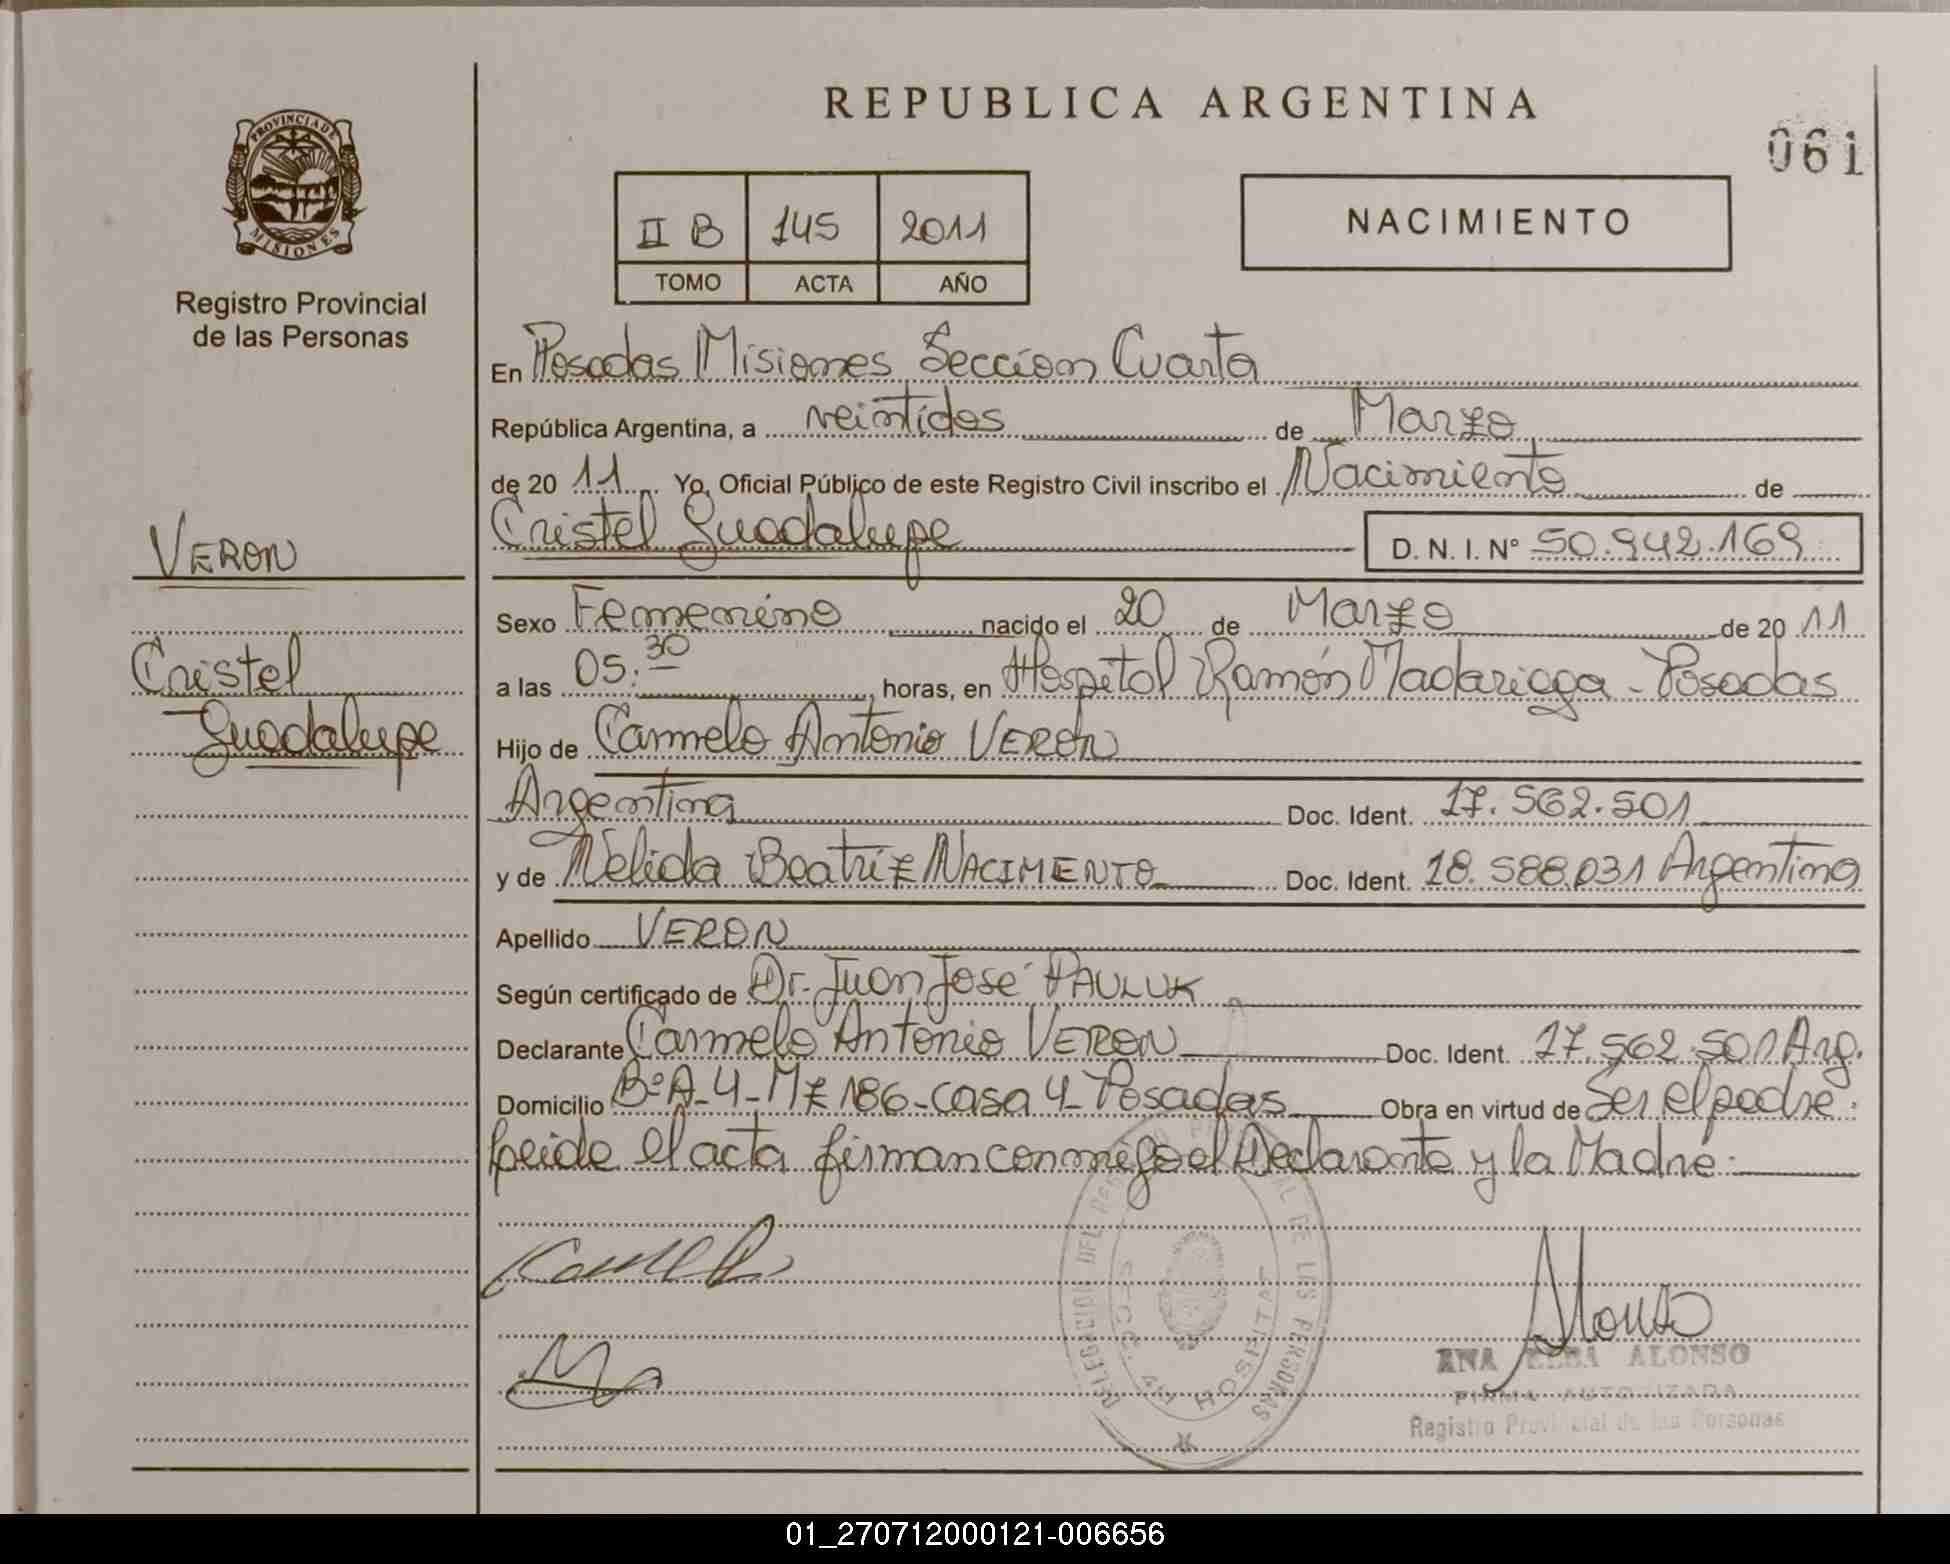 REPUBLICA ARGENTINA
061
PROVINCIA DE
MISIONES
Registro Provincial
de las Personas
II B 145 2011
TOMO ACTA AÑO
NACIMIENTO
En Posadas Misiones Seccion Cuarta
República Argentina, a veintidos de Marzo
de 20 11 Yo, Oficial Público de este Registro Civil inscribo el Nacimiento de
Cristel Guadalupe D. N. I. Nº 50.942.169
VERON
Cristel
Guadalupe
Sexo Femenino nacido el 20 de Marzo de 20 11
a las 05:30 horas, en Hospital Ramón Madariaga - Posadas
Hijo de Carmelo Antonio VERON
Argentina Doc. Ident. 17.562.501
y de Nelida Beatriz NACIMENTO Doc. Ident. 18.588.031 Argentina
Apellido VERON
Según certificado de Dr. Juan José PAULUK
Declarante Carmelo Antonio VERON Doc. Ident. 17.562.501 Arg.
Domicilio Bº A-4- Mz 186- casa 4- Posadas Obra en virtud de Ser el padre.
Leida el acta firman conmigo el Declarante y la Madre.-
DELEGACION DEL REGISTRO PROVINCIAL DE LAS PERSONAS
SECC. 4ta HOSPITAL
Alonso
ANA ELBA ALONSO
FIRMA AUTORIZADA
Registro Provincial de las Personas
01_270712000121-006656